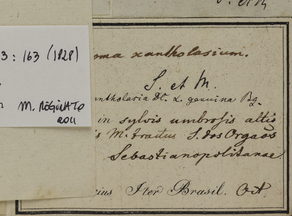 3: 163 (1828)
M. REGINATO
2011
ma xantholasium.
S. et M.
antholaria DC. α. genuina Bg.
in sylvis umbrosis altis
is M. tractus S. dos Orgaõs
Sebastianopolitanae
ius Iter Brasil. Oct